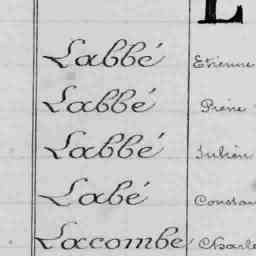 L
Labbé Etienne
Labbé Pierre
Labbé Julien
Labé Constan
Lacombe Charle